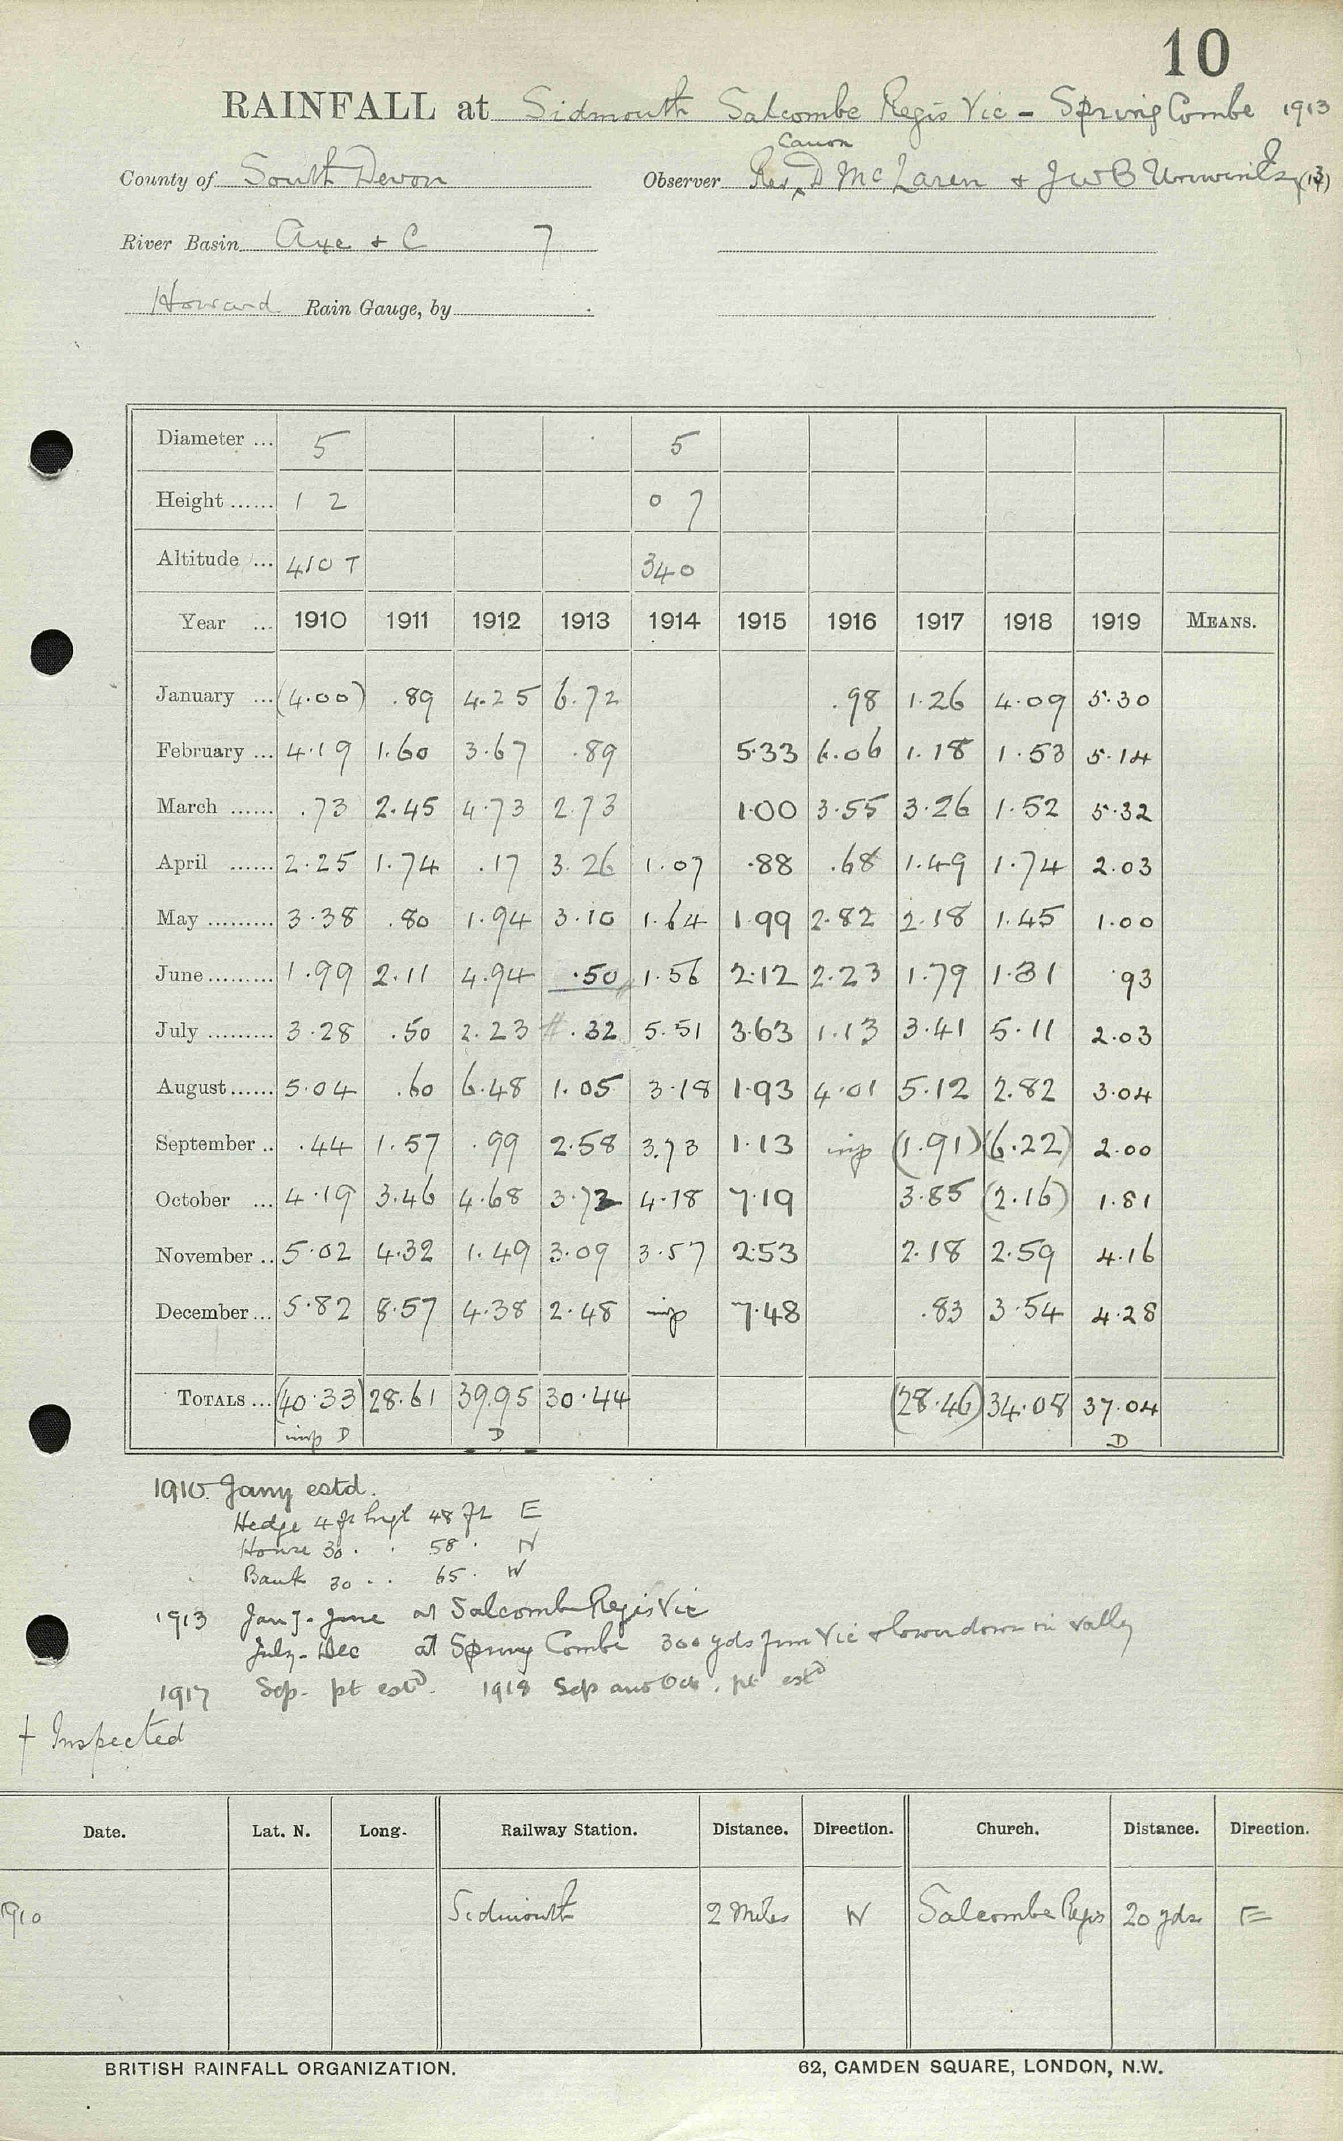 10
RAINFALL at Sidmouth Salcombe Regis Vic - Spring Combe 1913
Canon
County of South Devon Observer Rev D McLaren + J W B Unwin (13)
River Basin Axe + C 7
Howard Rain Gauge, by
Diameter ... 5 5
Height ...... 1 2 0 7
Altitude ... 410 T 340
Year ... 1910 1911 1912 1913 1914 1915 1916 1917 1918 1919 MEANS.
January ... (4.00) .89 4.25 6.72 .98 1.26 4.09 5.30
February ... 4.19 1.60 3.67 .89 5.33 6.06 1.18 1.53 5.14
March ...... .73 2.45 4.73 2.73 1.00 3.55 3.26 1.52 5.32
April ...... 2.25 1.74 .17 3.26 1.07 .88 .68 1.49 1.74 2.03
May ......... 3.38 .80 1.94 3.10 1.64 1.99 2.82 2.18 1.45 1.00
June ......... 1.99 2.11 4.94 .50 1.56 2.12 2.23 1.79 1.31 .93
July ......... 3.28 .50 2.23 # .32 5.51 3.63 1.13 3.41 5.11 2.03
August ...... 5.04 .60 6.48 1.05 3.18 1.93 4.01 5.12 2.82 3.04
September .. .44 1.57 .99 2.58 3.73 1.13 imp (1.91) (6.22) 2.00
October ... 4.19 3.46 4.68 3.72 4.18 7.19 3.85 (2.16) 1.81
November .. 5.02 4.32 1.49 3.09 3.57 2.53 2.18 2.59 4.16
December ... 5.82 8.57 4.38 2.48 imp 7.48 .83 3.54 4.28
TOTALS ... (40.33) 28.61 39.95 30.44 (28.46) 34.08 37.04
imp D D D
1910. Jany estd.
Hedge 4 ft high 48 ft E
House 30 . . 58 . N
Bank 30 . . 65 . W
1913 Jany - June at Salcombe Regis Vic
July - Dec at Spring Combe 300 yds from Vic & lower down in valley
1917 Sep. pt estd. 1918 Sep and Oct. pt estd
+ Inspected
Date. Lat. N. Long. Railway Station. Distance. Direction. Church. Distance. Direction.
1910 Sidmouth 2 Miles W Salcombe Regis 20 yds E
BRITISH RAINFALL ORGANIZATION. 62, CAMDEN SQUARE, LONDON, N.W.